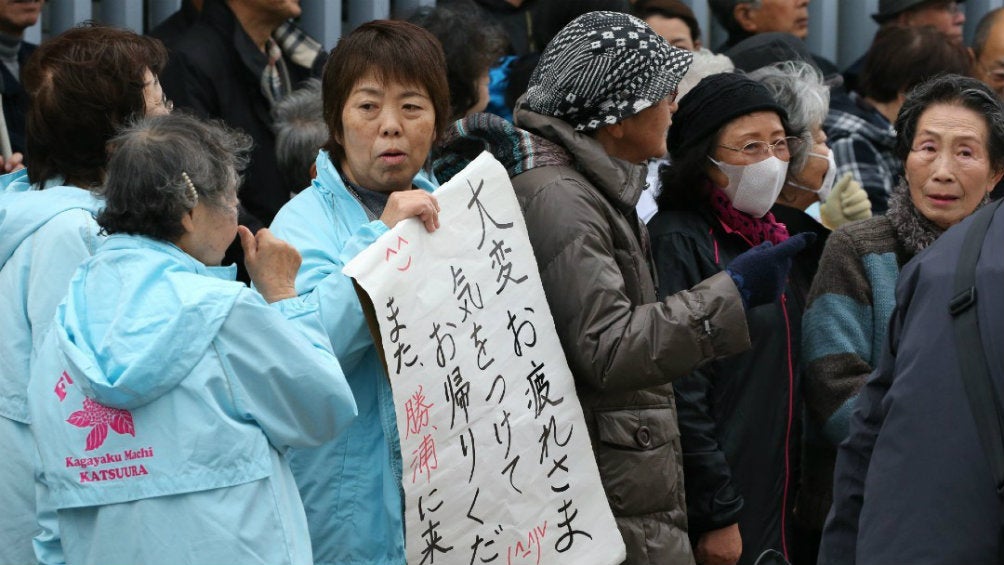 大変 お疲れさま
気をつけて
お帰りくだ
また、勝浦に来
^^
Kagayaku Machi
KATSUURA